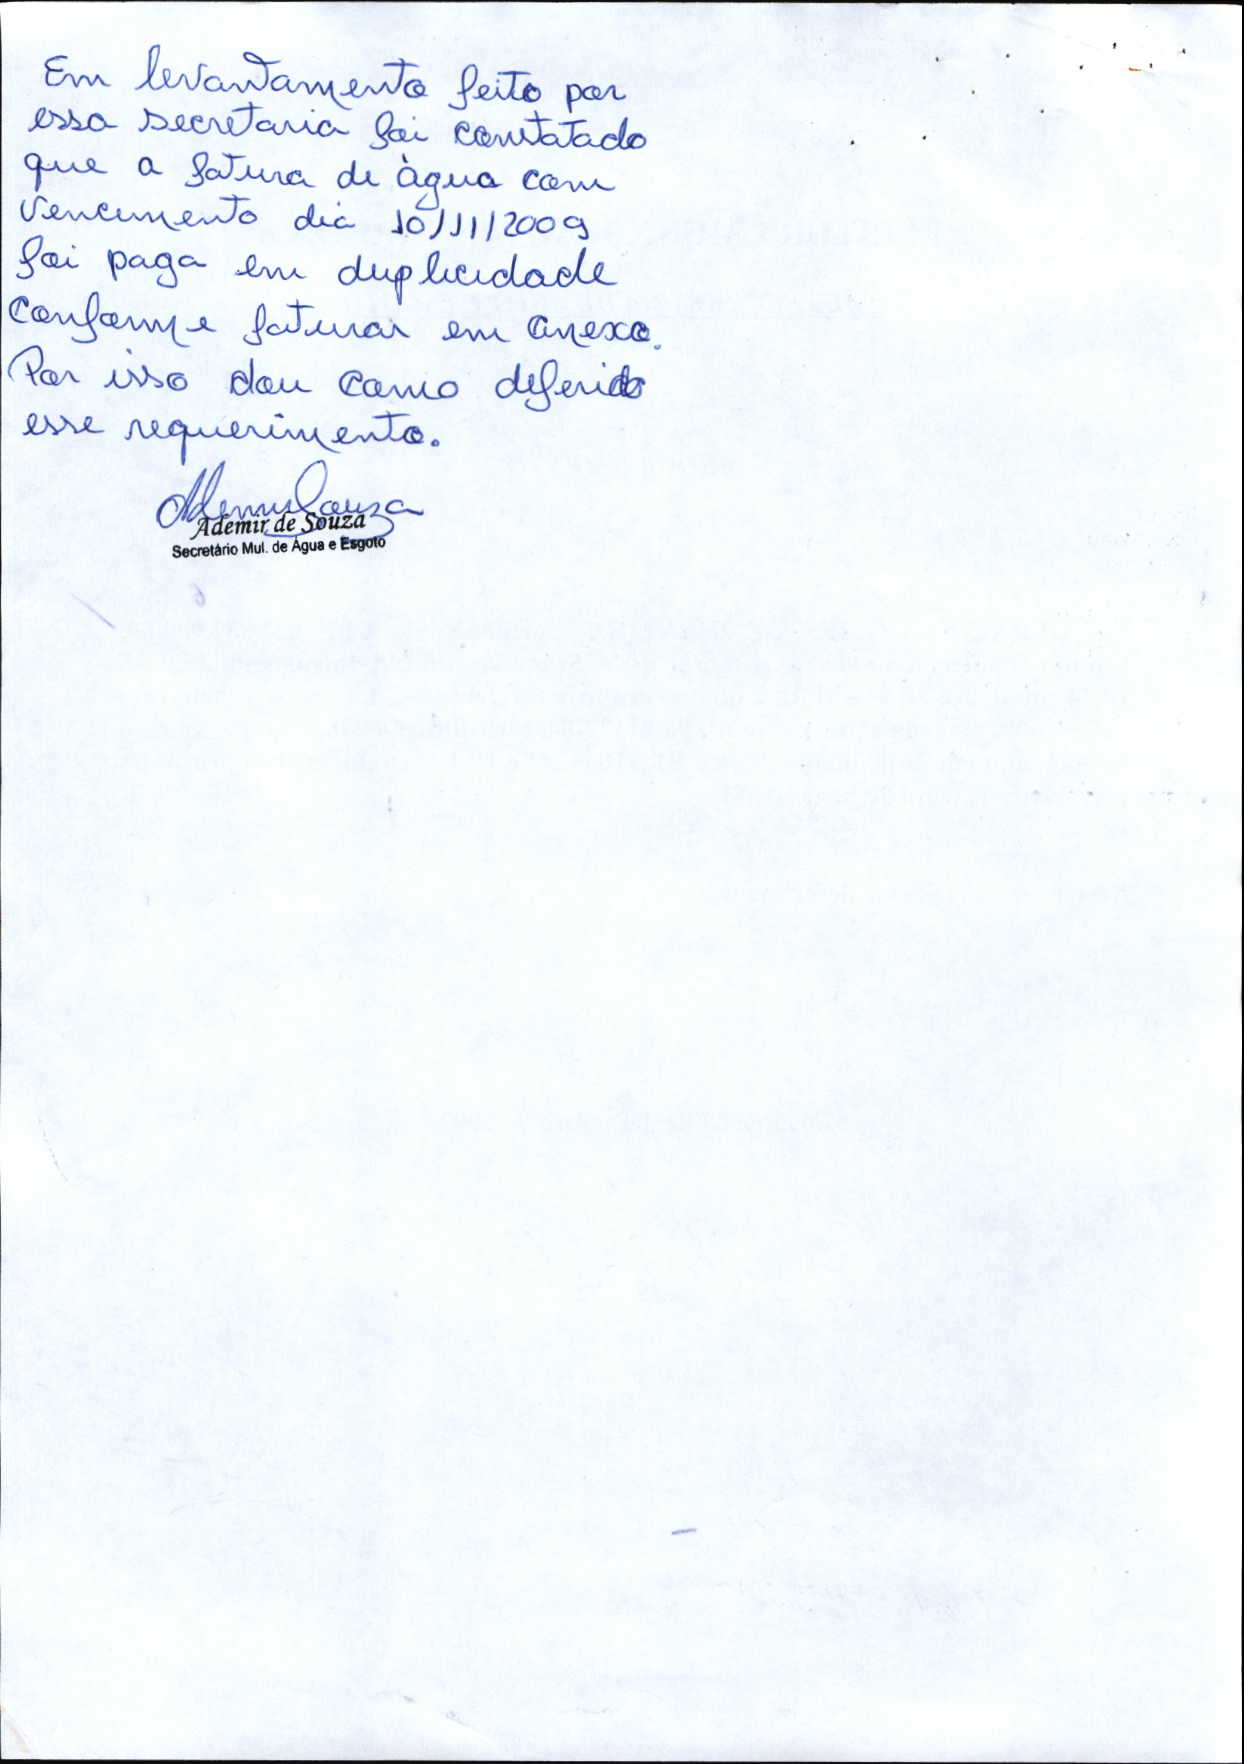 Em levantamento feito por
essa secretaria foi constatado
que a fatura de àgua com
vencimento dia 10/11/2009
foi paga em duplicidade
conforme faturas em anexo.
Por isso dou como deferido
esse requerimento.
Ademir de Souza
Secretário Mul. de Água e Esgoto